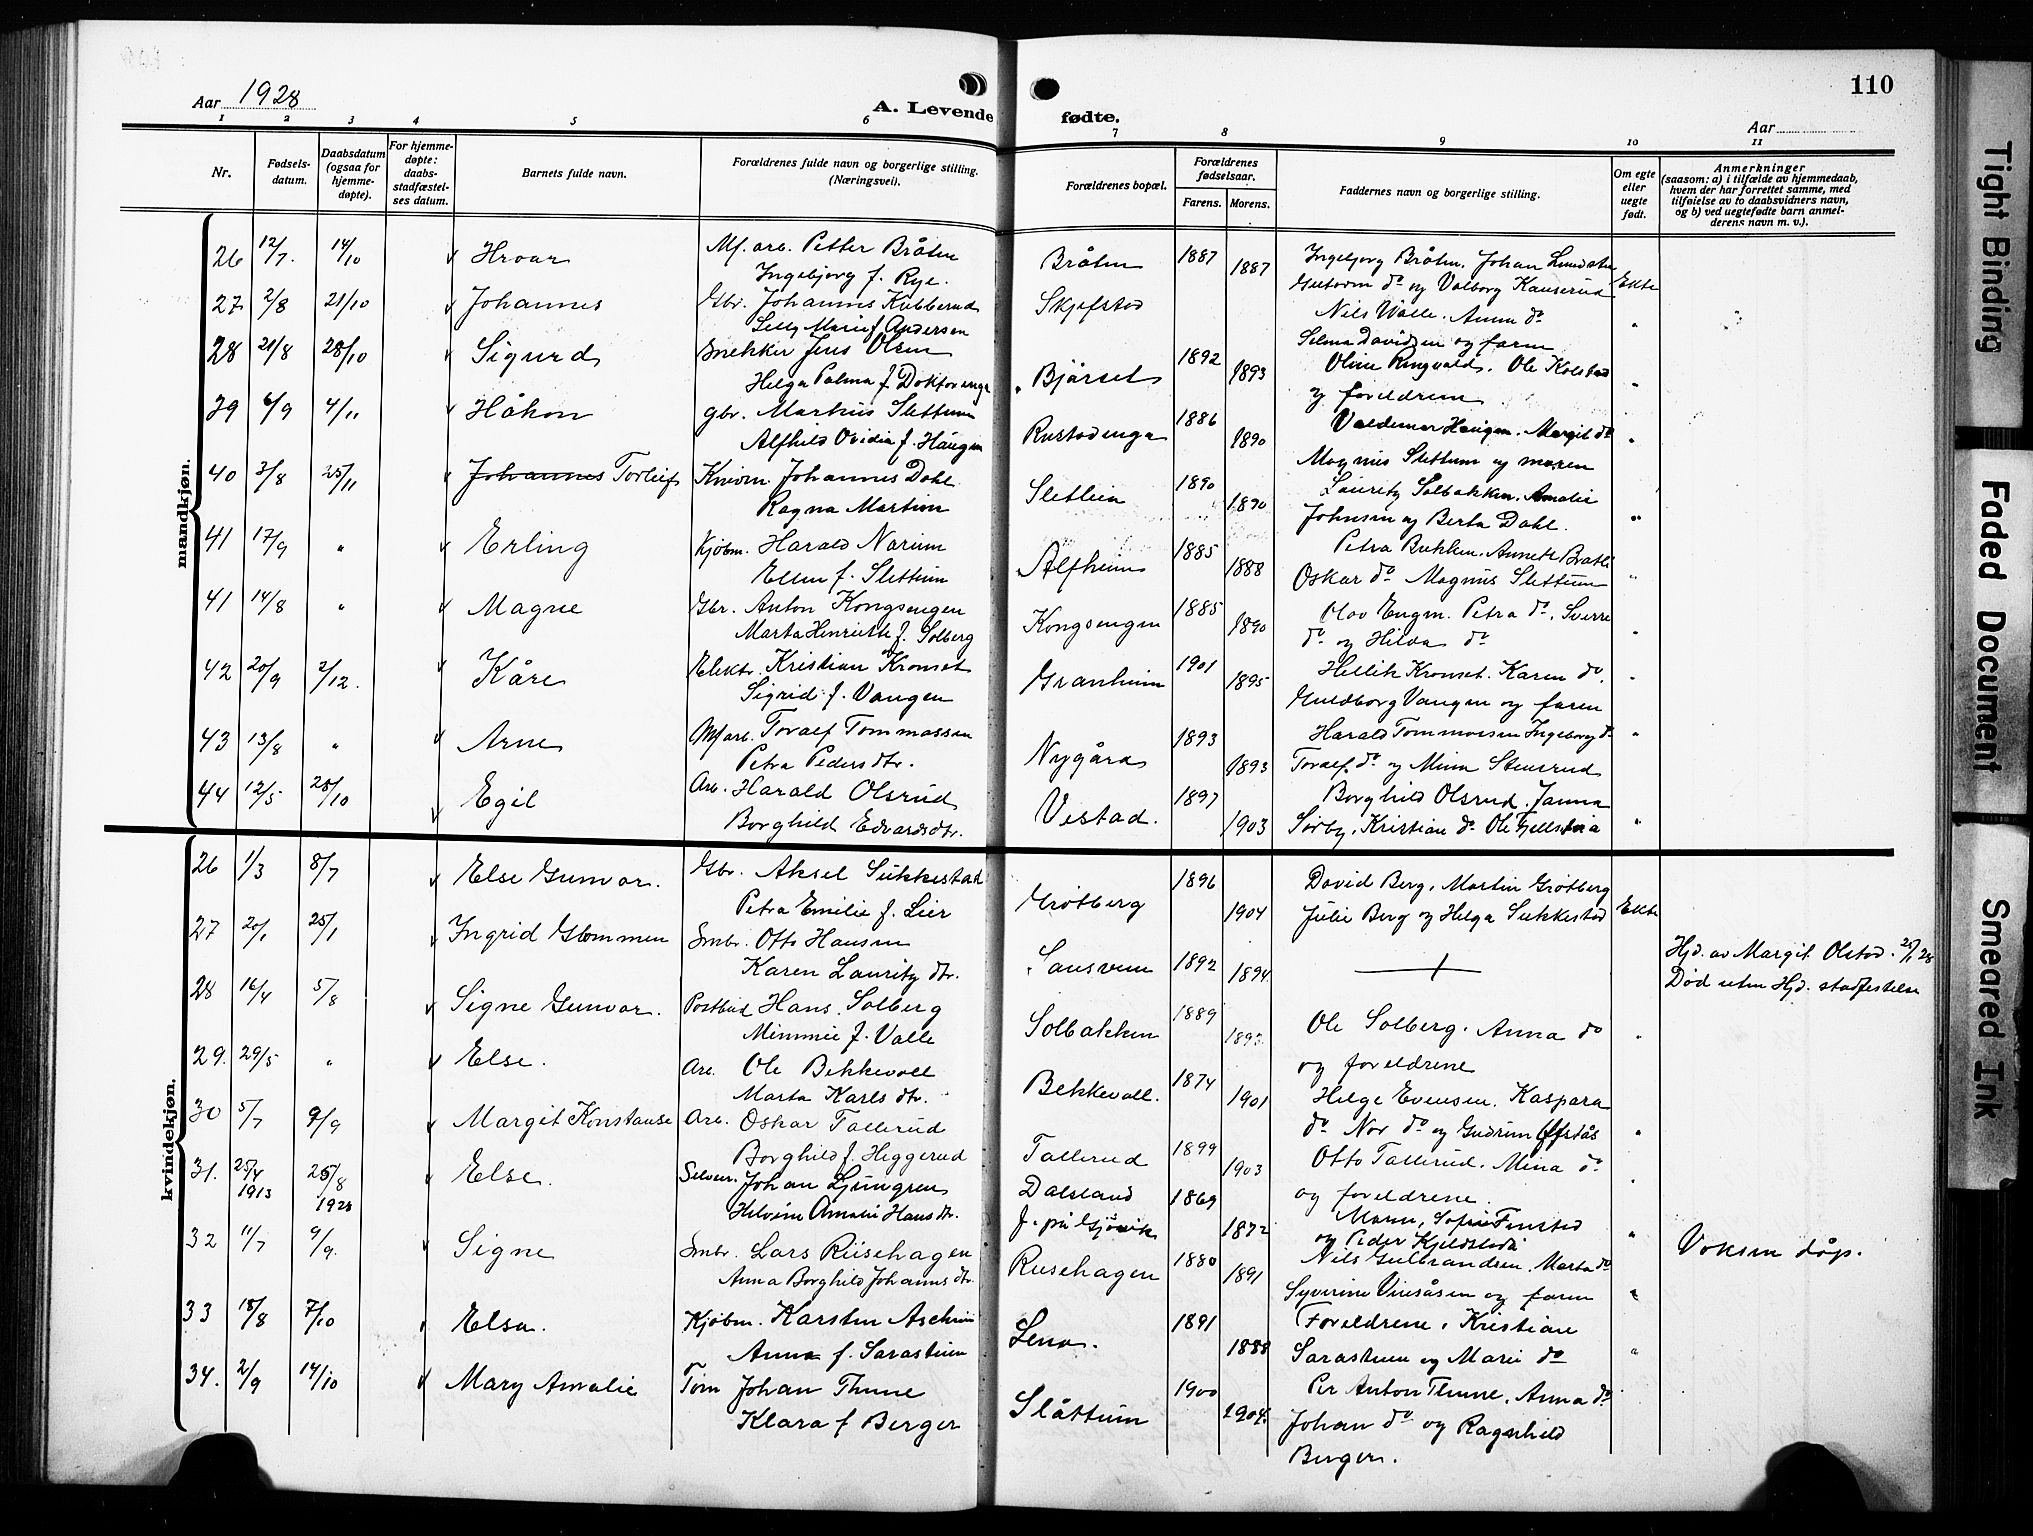 110
Aar 1928
A. Levende fødte.
Aar
1 2 3 4 5 6 7 8 9 10 11
Nr.
Fødsels-
datum.
Daabsdatum
(ogsaa for
hjemme-
døpte).
For hjemme-
døpte:
daabs-
stadfæstel-
ses datum.
Barnets fulde navn.
Forældrenes fulde navn og borgerlige stilling.
(Næringsvei).
Forældrenes bopæl.
Forældrenes
fødselsaar.
Farens. Morens.
Faddernes navn og borgerlige stilling.
Om egte
eller
uegte
født.
Anmerkninger
(saasom: a) i tilfælde av hjemmedaab,
hvem der har forrettet samme, med
tilføielse av to daabsvidners navn,
og b) ved uegtefødte barn anmel-
derens navn m. v.).
mandkjøn.
26 12/7. 14/10 Hroar Mf. arb. Petter Bråten Bråten 1887 1887 Ingebjorg Bråten. Johan
Ingebjorg f. Rye. Gutorm do og Valborg Kauserud Ekte
27 2/8 21/10 Johannes Gbr. Johannes Kubberud Skjefstad Nils Walle. Anna do "
Selly Marie f. Andersen Selma Davidsen og faren
28 21/8 28/10 Sigurd Snekker Jens Olsen Bjårset 1892 1893 Oline Ringvold. Ole Kolstad "
Helga Palma f. Doktorenga og foreldrene
39 6/9 4/11 Håkon gbr. Markus Slettum Rustadenga 1886 1890 Valdemar Haugen. Margit do "
Alfhild Ovidia f. Haugen Magnus Slettum og moren
40 3/8 25/11 Johannes Torleif Johannes Dahl Sletlien 1890 1890 Lauritz Solbakken. Amalie
Ragna Martion Johnsen og Berta Dahl. "
41 17/9 " Erling Kjøbm. Harald Narum Alfheim 1885 1888 Petra Bekken. Annette Bratli
Ellen f. Slettum Oskar do Magnus Slettum "
41 14/8 " Magne Gbr. Anton Kongsengen Kongsengen 1885 1890 Olav Engen. Petra do. Sverre
Marta Henriette f. Solberg do og Hilda do "
42 20/9 2/12. Kåre Elektr. Kristian Kronset Granheim 1901 1895 Hellik Kronset. Karen do. "
Sigrid f. Vangen Guldborg Vangen og faren
43 13/8 " Arne Mf arb. Toralf Tommassen Nygård 1893 1893 Harald Tommassen Ingeborg do "
Petra Pedersdtr. Toralf do og Mina Stensrud
44 12/5 28/10 Egil Arb. Harald Olsrud Vestad. 1897 1903 Borghild Olsrud. Janna
Borghild Edvardsdtr. Sørby. Kristian do Ole "
kvindekjøn.
26 1/3 8/7 Else Gunvor. Gbr. Aksel Sukkestad Grøtberg 1896 1904 David Berg, Martin Grøtberg
Petra Emilie f. Lier Julie Berg og Helga Sukkestad Ekte
27 20/1 25/1 Ingrid Glommen Smbr. Otto Hansen Sansveen 1892 1894 Hjd. av Margit Olstad. 25/1 28
Karen Lauritz dtr. Død uten Hjd. stadfestelse
28 16/4 5/8 Signe Gunvor. Postbud Hans Solberg Solbakken 1889 1893 Ole Solberg. Anna do "
Mimmie f. Valle og foreldrene
29. 29/5 " Else. Arb. Ole Bekkevoll Bekkevoll. 1874 1901 Helge Evensen. Kaspara
Marta Karls dtr. do Nor do og Gudrun "
30 5/7 9/9 Margit Konstanse Arb. Oskar Tollerud Tollerud 1899 1903 Otto Tollerud. Mina do
Borghild f. Heggerud og foreldrene.
31. 25/4 1913 26/8 1928 Else. Johan Ljungren Dalsland 1869 1872 Moren, Sofie Finstad
Helvine Amalie Hans dtr. f. på Gjøvik og Peder Kjeldstad " Voksen dåp.
32 11/7 9/9. Signe Smbr. Lars Rusehagen Rusehagen 1880 1891 Nils Gulbrandsen. Marta do
Anna Borghild Johanns dtr. Syverine og faren "
33 18/8 7/10 Elsa. Kjøbm. Karsten Aschim Lena. 1891 1888 Foreldrene. Kristian
Anna f. Sarastuen Sarastuen og Marie do "
34. 2/9 14/10 Mary Amalie Tøm Johan Thune Slåttum 1900 1904. Per Anton Thune. Anna do
Klara f Berger Johan do og Ragnhild
Berger.
Tight Binding
Faded Document
Smeared Ink